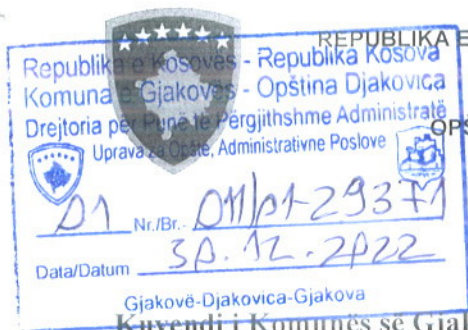 REPUBLIKA E
Republika e Kosovës - Republika Kosova
Komuna e Gjakovës - Opština Djakovica
Drejtoria për Punë të Përgjithshme Administratë
OPŠ
Uprava za Opšte, Administrativne Poslove
01 Nr./Br.- 011/01-29371
Data/Datum 30.12.2022
Gjakovë-Djakovica-Gjakova
Kuvendi i Komunës së Gjak